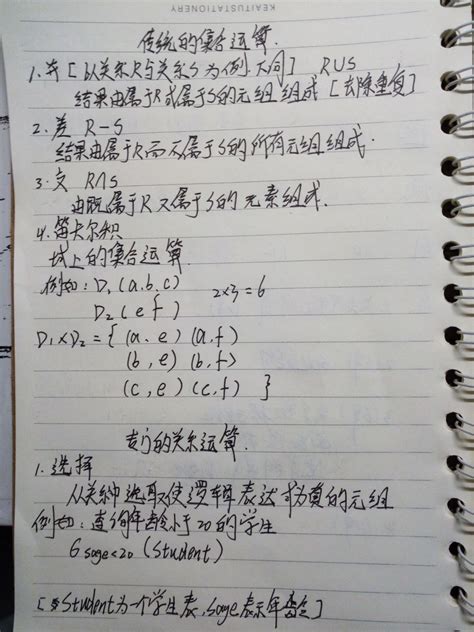 KEAITUSTATIONERY
传统的集合运算.
1.并[以关系R与关系S为例.下同] R∪S
结果由属于R或属于S的元组组成[去除重复]
2.差 R-S
结果由属于R而不属于S的所有元组组成.
3.交 R∩S
由既属于R又属于S的元素组成.
4.笛卡尔积
域上的集合运算.
例如:D₁(a.b.c) 2×3=6
D₂(e f)
D₁×D₂={(a.e)(a,f)
(b,e)(b,f)
(c,e)(c,f) }
专门的关系运算.
1.选择
从关系中选取使逻辑表达式为真的元组
例如:查询年龄小于20的学生
6 sage<20 (Student)
[Student为一个学生表,Sage表示年龄]